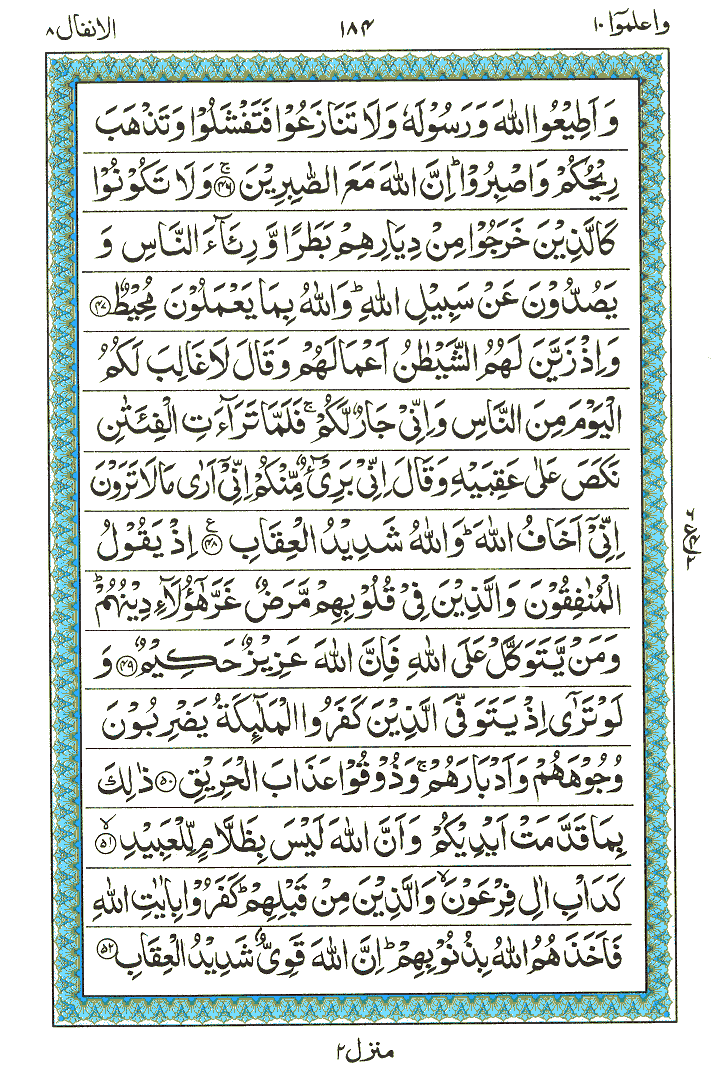 واعلموآ ١٠
١٨۴
الانفال ٨
وَ اَطِيْعُوا اللهَ وَ رَسُوْلَهٗ وَ لَا تَنَازَعُوْا فَتَفْشَلُوْا وَ تَذْهَبَ
رِيْحُكُمْ وَ اصْبِرُوْا ؕ اِنَّ اللهَ مَعَ الصّٰبِرِيْنَ ۚ﴿۴۶﴾ وَ لَا تَكُوْنُوْا
كَالَّذِيْنَ خَرَجُوْا مِنْ دِيَارِهِمْ بَطَرًا وَّ رِئَآءَ النَّاسِ وَ
يَصُدُّوْنَ عَنْ سَبِيْلِ اللهِ ؕ وَ اللهُ بِمَا يَعْمَلُوْنَ مُحِيْطٌ ﴿۴۷﴾
وَ اِذْ زَيَّنَ لَهُمُ الشَّيْطٰنُ اَعْمَالَهُمْ وَ قَالَ لَا غَالِبَ لَكُمُ
الْيَوْمَ مِنَ النَّاسِ وَ اِنِّيْ جَارٌ لَّكُمْ ۚ فَلَمَّا تَرَآءَتِ الْفِئَتٰنِ
نَكَصَ عَلٰى عَقِبَيْهِ وَ قَالَ اِنِّيْ بَرِيْٓءٌ مِّنْكُمْ اِنِّيْۤ اَرٰى مَا لَا تَرَوْنَ
اِنِّيْۤ اَخَافُ اللهَ ؕ وَ اللهُ شَدِيْدُ الْعِقَابِ ﴿۴۸﴾ ع اِذْ يَقُوْلُ
الْمُنٰفِقُوْنَ وَ الَّذِيْنَ فِيْ قُلُوْبِهِمْ مَّرَضٌ غَرَّ هٰۤؤُلَآءِ دِيْنُهُمْ ؕ
وَ مَنْ يَّتَوَكَّلْ عَلَى اللهِ فَاِنَّ اللهَ عَزِيْزٌ حَكِيْمٌ ﴿۴۹﴾ وَ
لَوْ تَرٰۤى اِذْ يَتَوَفَّى الَّذِيْنَ كَفَرُوا الْمَلٰٓئِكَةُ يَضْرِبُوْنَ
وُجُوْهَهُمْ وَ اَدْبَارَهُمْ ۚ وَ ذُوْقُوْا عَذَابَ الْحَرِيْقِ ﴿۵۰﴾ ذٰلِكَ
بِمَا قَدَّمَتْ اَيْدِيْكُمْ وَ اَنَّ اللهَ لَيْسَ بِظَلَّامٍ لِّلْعَبِيْدِ ۙ﴿۵۱﴾
كَدَاْبِ اٰلِ فِرْعَوْنَ ۙ وَ الَّذِيْنَ مِنْ قَبْلِهِمْ ؕ كَفَرُوْا بِاٰيٰتِ اللهِ
فَاَخَذَهُمُ اللهُ بِذُنُوْبِهِمْ ؕ اِنَّ اللهَ قَوِيٌّ شَدِيْدُ الْعِقَابِ ﴿۵۲﴾
منزل ٢